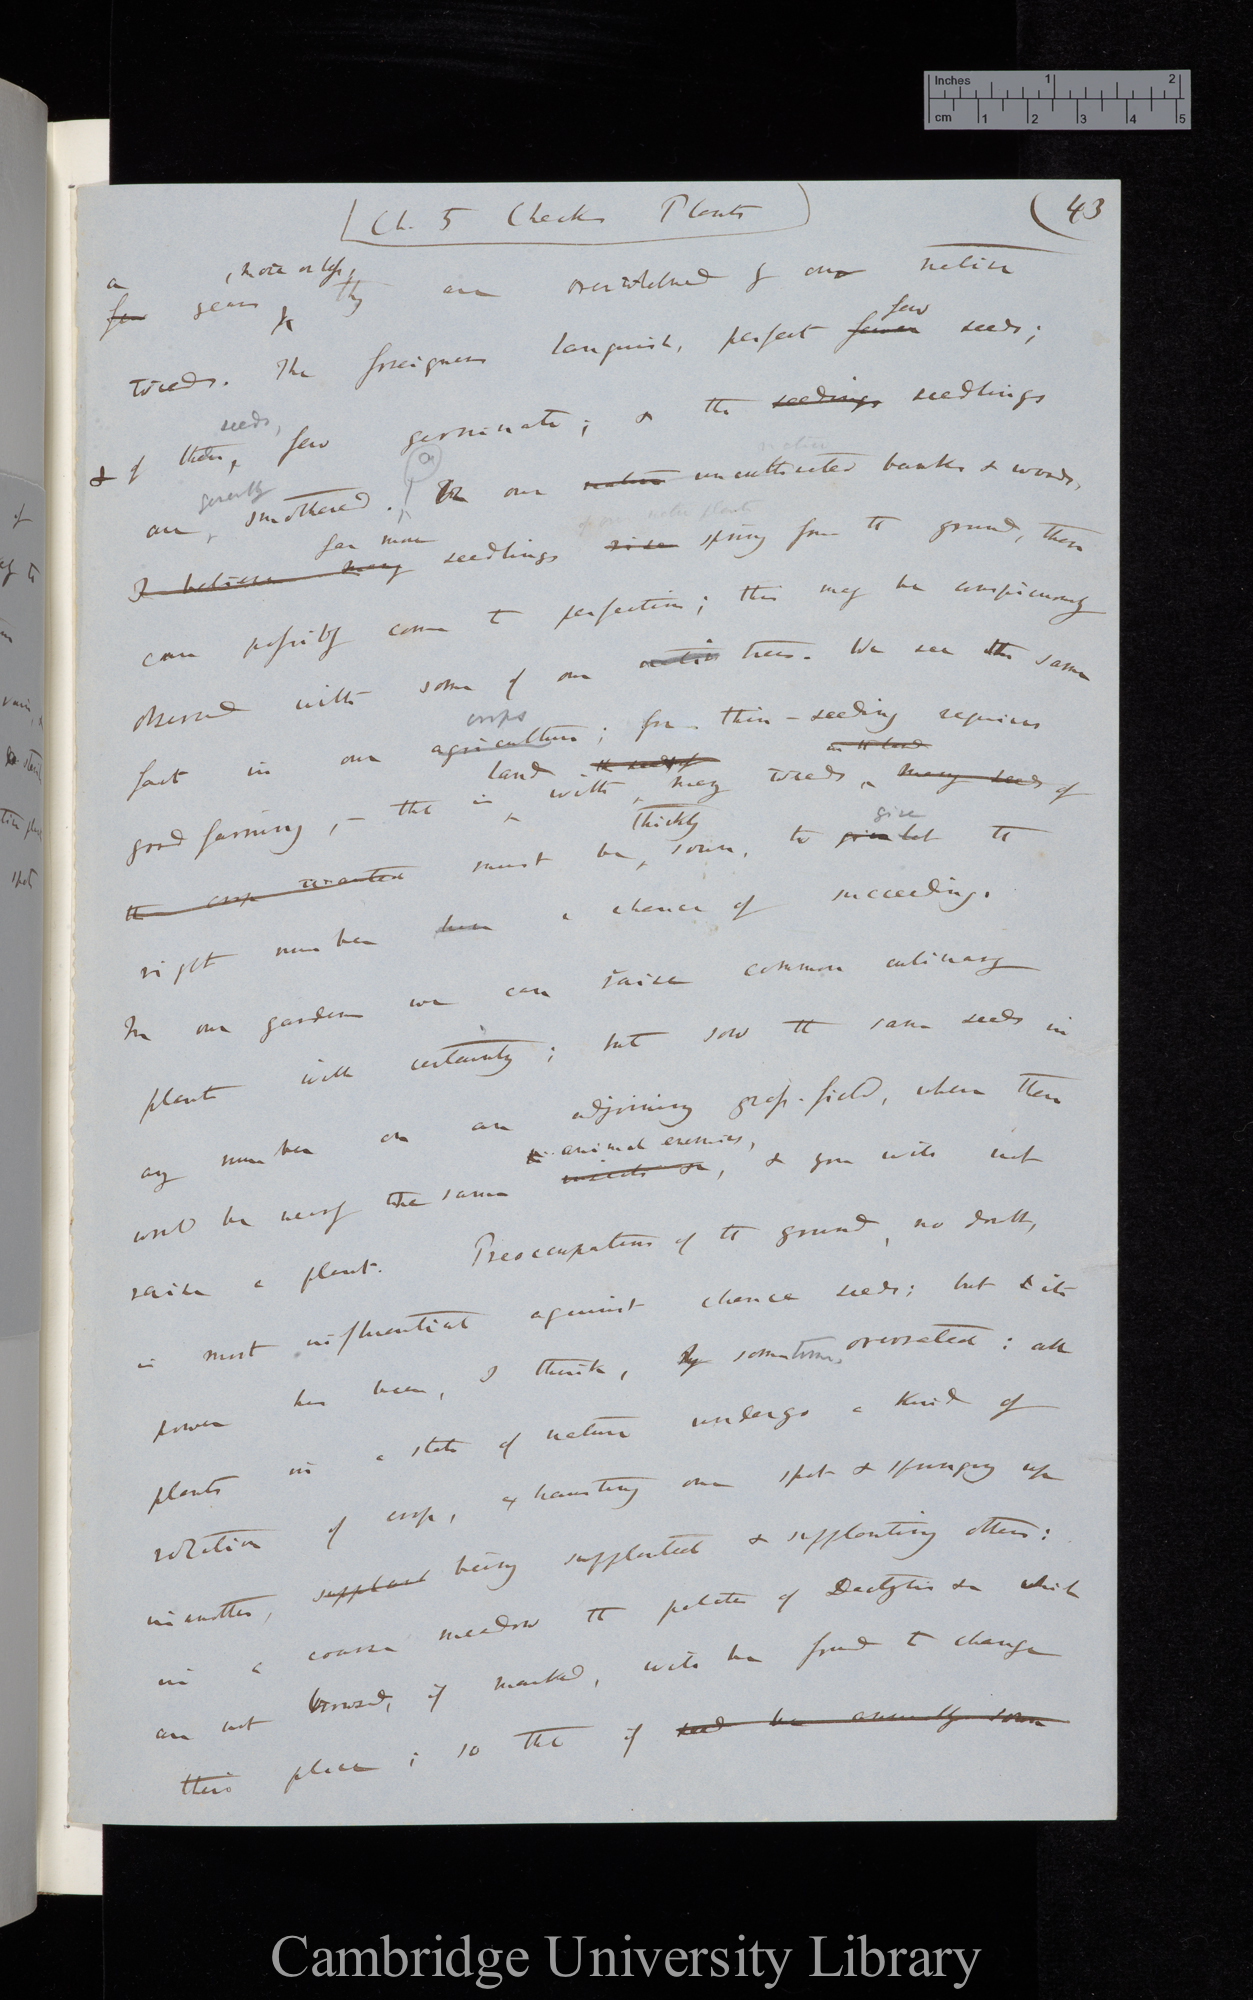 Inches 1 2
cm 1 2 3 4 5
Ch. 5 Checks Plants
(43
a (more or less,
few years they are overwhelmed by our native
few
weeds. The foreigners languish, perfect fewer seeds;
seeds,
& of these, few germinate; & the seedings seedlings
native
generally
are smothered. In our native uncultivated banks & woods,
of our native plants
far more
I believe many seedlings rise spring from the ground, than
can possibly come to perfection; this may be conspicuously
observed with some of our native trees. We see the same
crops
fact in our agriculture; for thin-seeding requires
land the seeds of on the land
good farming, – that is with many weeds, many seeds of
thickly give
the crop wanted must be sown, to give let the
right number have a chance of succeeding.
In our garden we can raise common culinary
plants with certainty; but sow the same seeds in
any number on an adjoining grass-field, where there
animal enemies,
would be nearly the same insects &c, & you will not
raise a plant. Preoccupation of the ground, no doubt,
is most influential against chance seeds; but its
power has been, I think, sometimes overrated: all
plants in a state of nature undergo a kind of
rotation of crop, exhausting one spot & springing up
in another, supplant being supplanted & supplanting others:
in a coarse meadow the patches of Dactylis &c which
are not browsed, if marked, will be found to change
their place; so that if seed be annually sown
Cambridge University Library